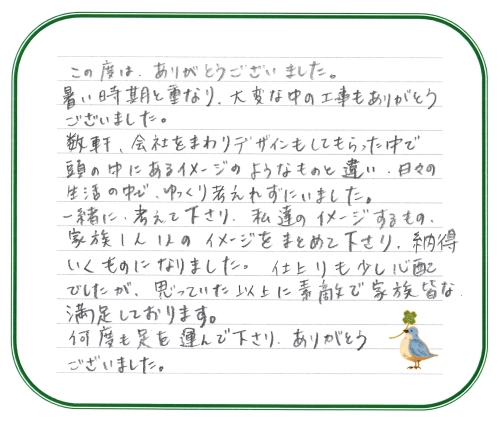 この度は、ありがとうございました。
暑い時期と重なり、大変な中の工事もありがとう
ございました。
数軒、会社をまわりデザインもしてもらった中で
頭の中にあるイメージのようなものと違い、日々の
生活の中で、ゆっくり考えれずにいました。
一緒に、考えて下さり、私達のイメージするもの、
家族1人1人のイメージをまとめて下さり、納得
いくものになりました。仕上りも少し心配
でしたが、思っていた以上に素敵で家族皆な
満足しております。
何度も足を運んで下さり、ありがとう
ございました。